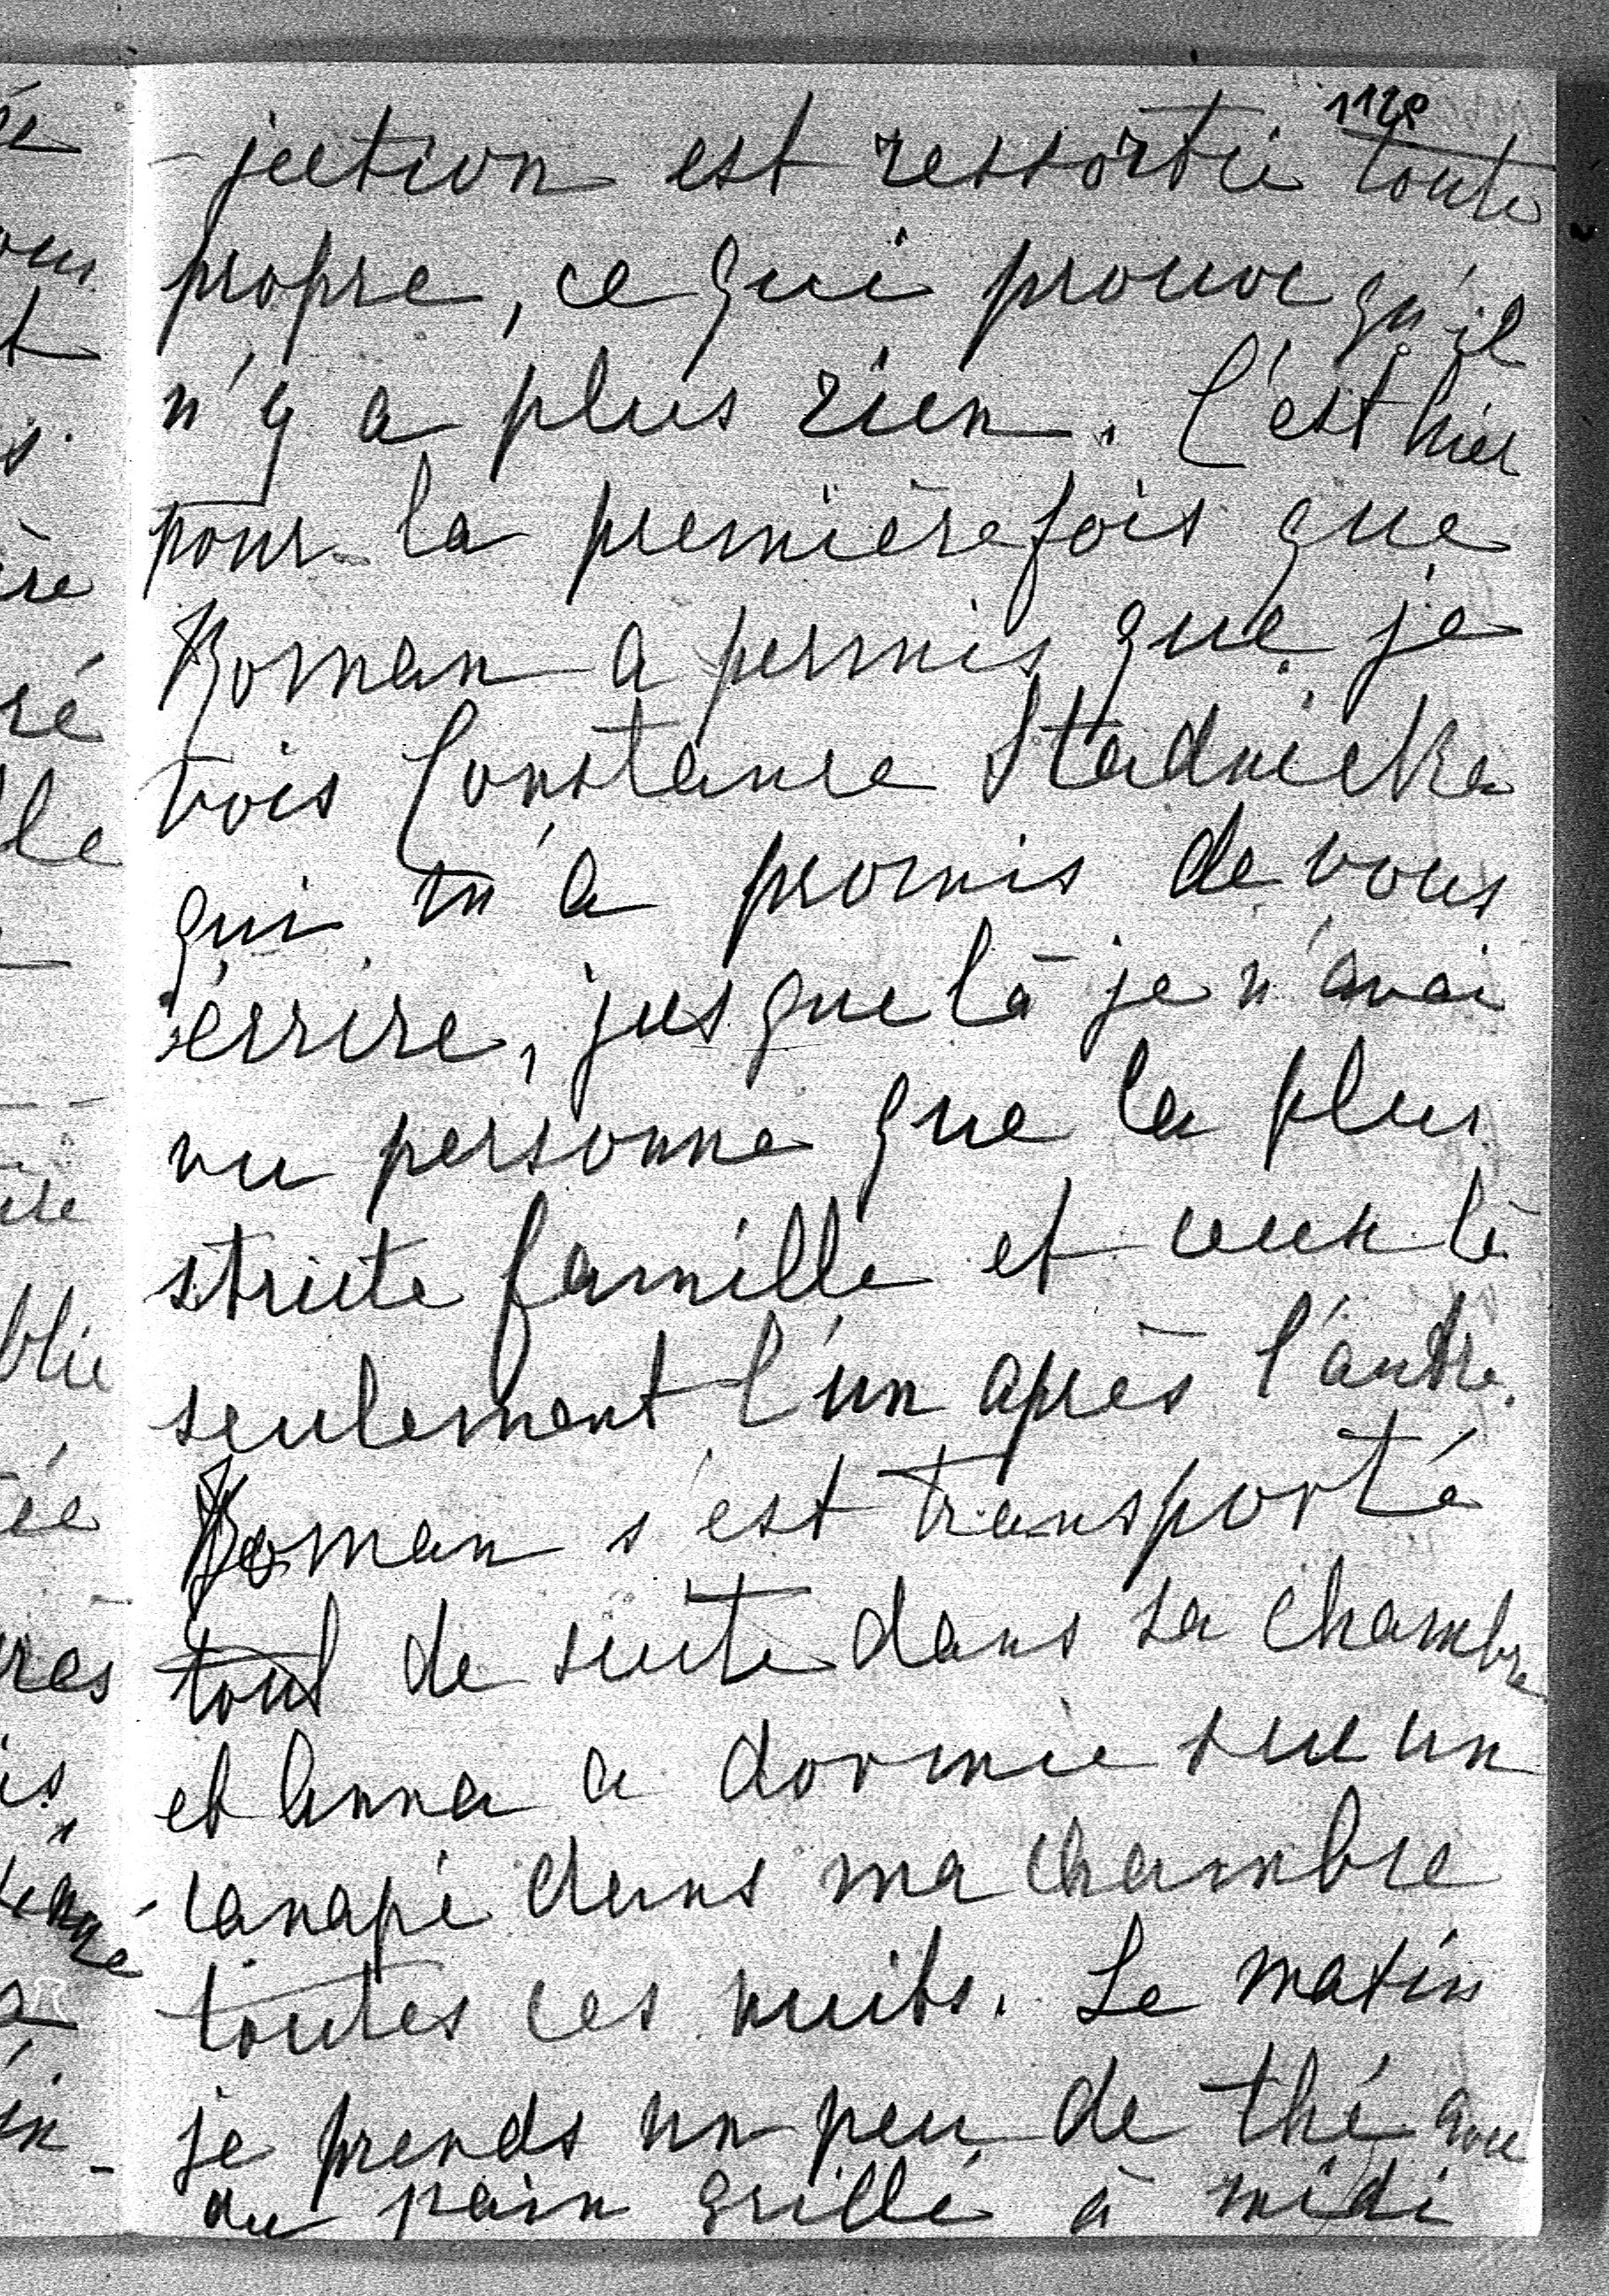 1120
-jection est ressortie toute
propre, ce qui prouve qu'il
n'y a plus rien. C'est hier
pour la première fois que
Roman a permis que je
vois Constance Stadnicka
qui m'a promis de vous
écrire, jusque là je n'avai
vu personne que la plus
stricte famille et ceux là
seulement l'un après l'autre.
Roman s'est transporté
tout de suite dans sa chambre
et Anna a dormie sur un
canapé dans ma chambre
toutes ces nuits. Le matin
je prends un peu de thé avec
du pain grillé à midi